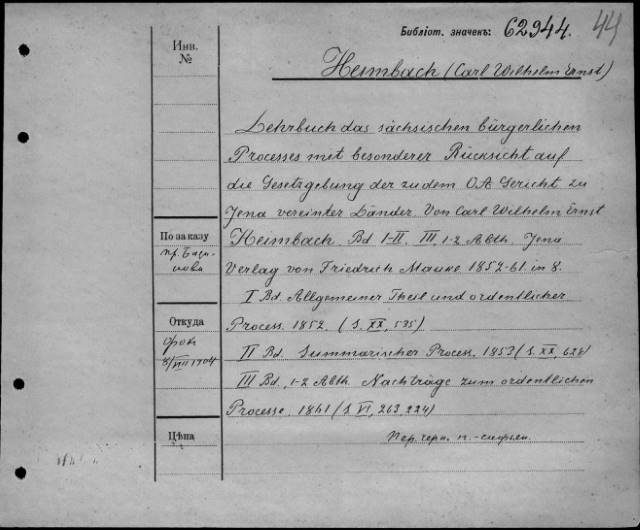 Библіот. значекъ: 62944. 44
Инв.
№
Heimbach (Carl Wilhelm Ernst)
Lehrbuch das sächsischen bürgerlichen
Processes mit besonderer Rücksicht auf
die Gesetzgebung der zu dem O.A. Gericht zu
Jena vereinter Länder. Von Carl Wilhelm Ernst
По заказу
пр.
Heimbach. Bd I-II, III, 1-2 Abth. Jena
Verlag von Friedrich Mauke 1852-61. in 8.
I Bd. Allgemeiner Theil und ordentlicher
Откуда
Process. 1852. (S. XX, 535)
8/VII 1904
II Bd. Summarischer Process. 1853 (S. XX, 628)
III Bd., 1-2 Abth. Nachträge zum ordentlichen
Processe 1861 (S. VI, 263, 224)
Цѣна
Пер. черн. п.-